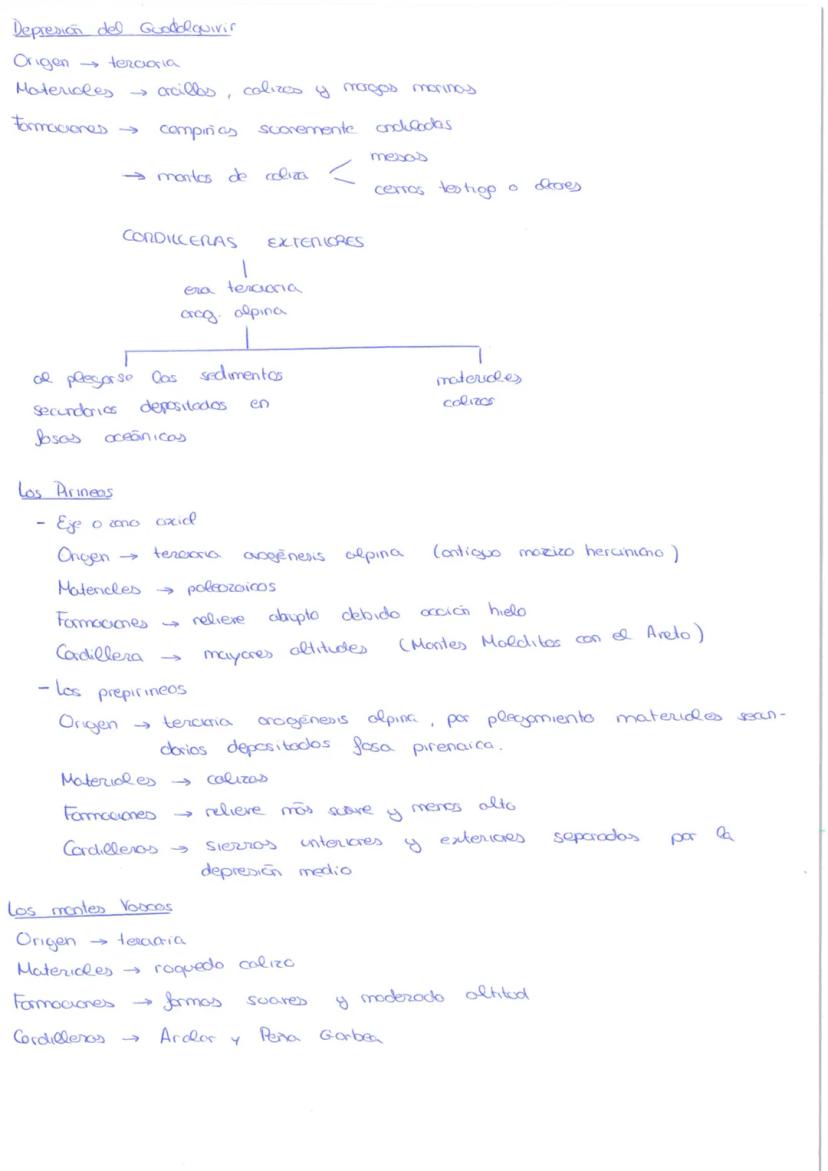 Depresión del Guadalquivir
Origen → terciaria
Materiales → arcillas, calizas y margas marinas
Formaciones → campiñas suavemente onduladas
→ mantos de caliza < mesas
cerros testigo o alcores
CORDILLERAS EXTERIORES
era terciaria
orog. alpina
al plegarse los sedimentos
secundarios depositados en
fosas oceánicas
materiales
calizos
Los Pirineos
- Eje o zona axial
Origen → terciaria orogénesis alpina (antiguo macizo herciniano)
Materiales → paleozoicos
Formaciones → relieve abrupto debido acción hielo
Cordillera → mayores altitudes (Montes Malditos con el Aneto)
- Los prepirineos
Origen → terciaria orogénesis alpina, por plegamiento materiales secun-
darios depositados fosa pirenaica.
Materiales → calizas
Formaciones → relieve más suave y menos alto
Cordilleras → sierras interiores y exteriores separadas por la
depresión media
Los montes Vascos
Origen → terciaria
Materiales → roquedo calizo
Formaciones → formas suaves y moderada altitud
Cordilleras → Aralar y Peña Gorbea